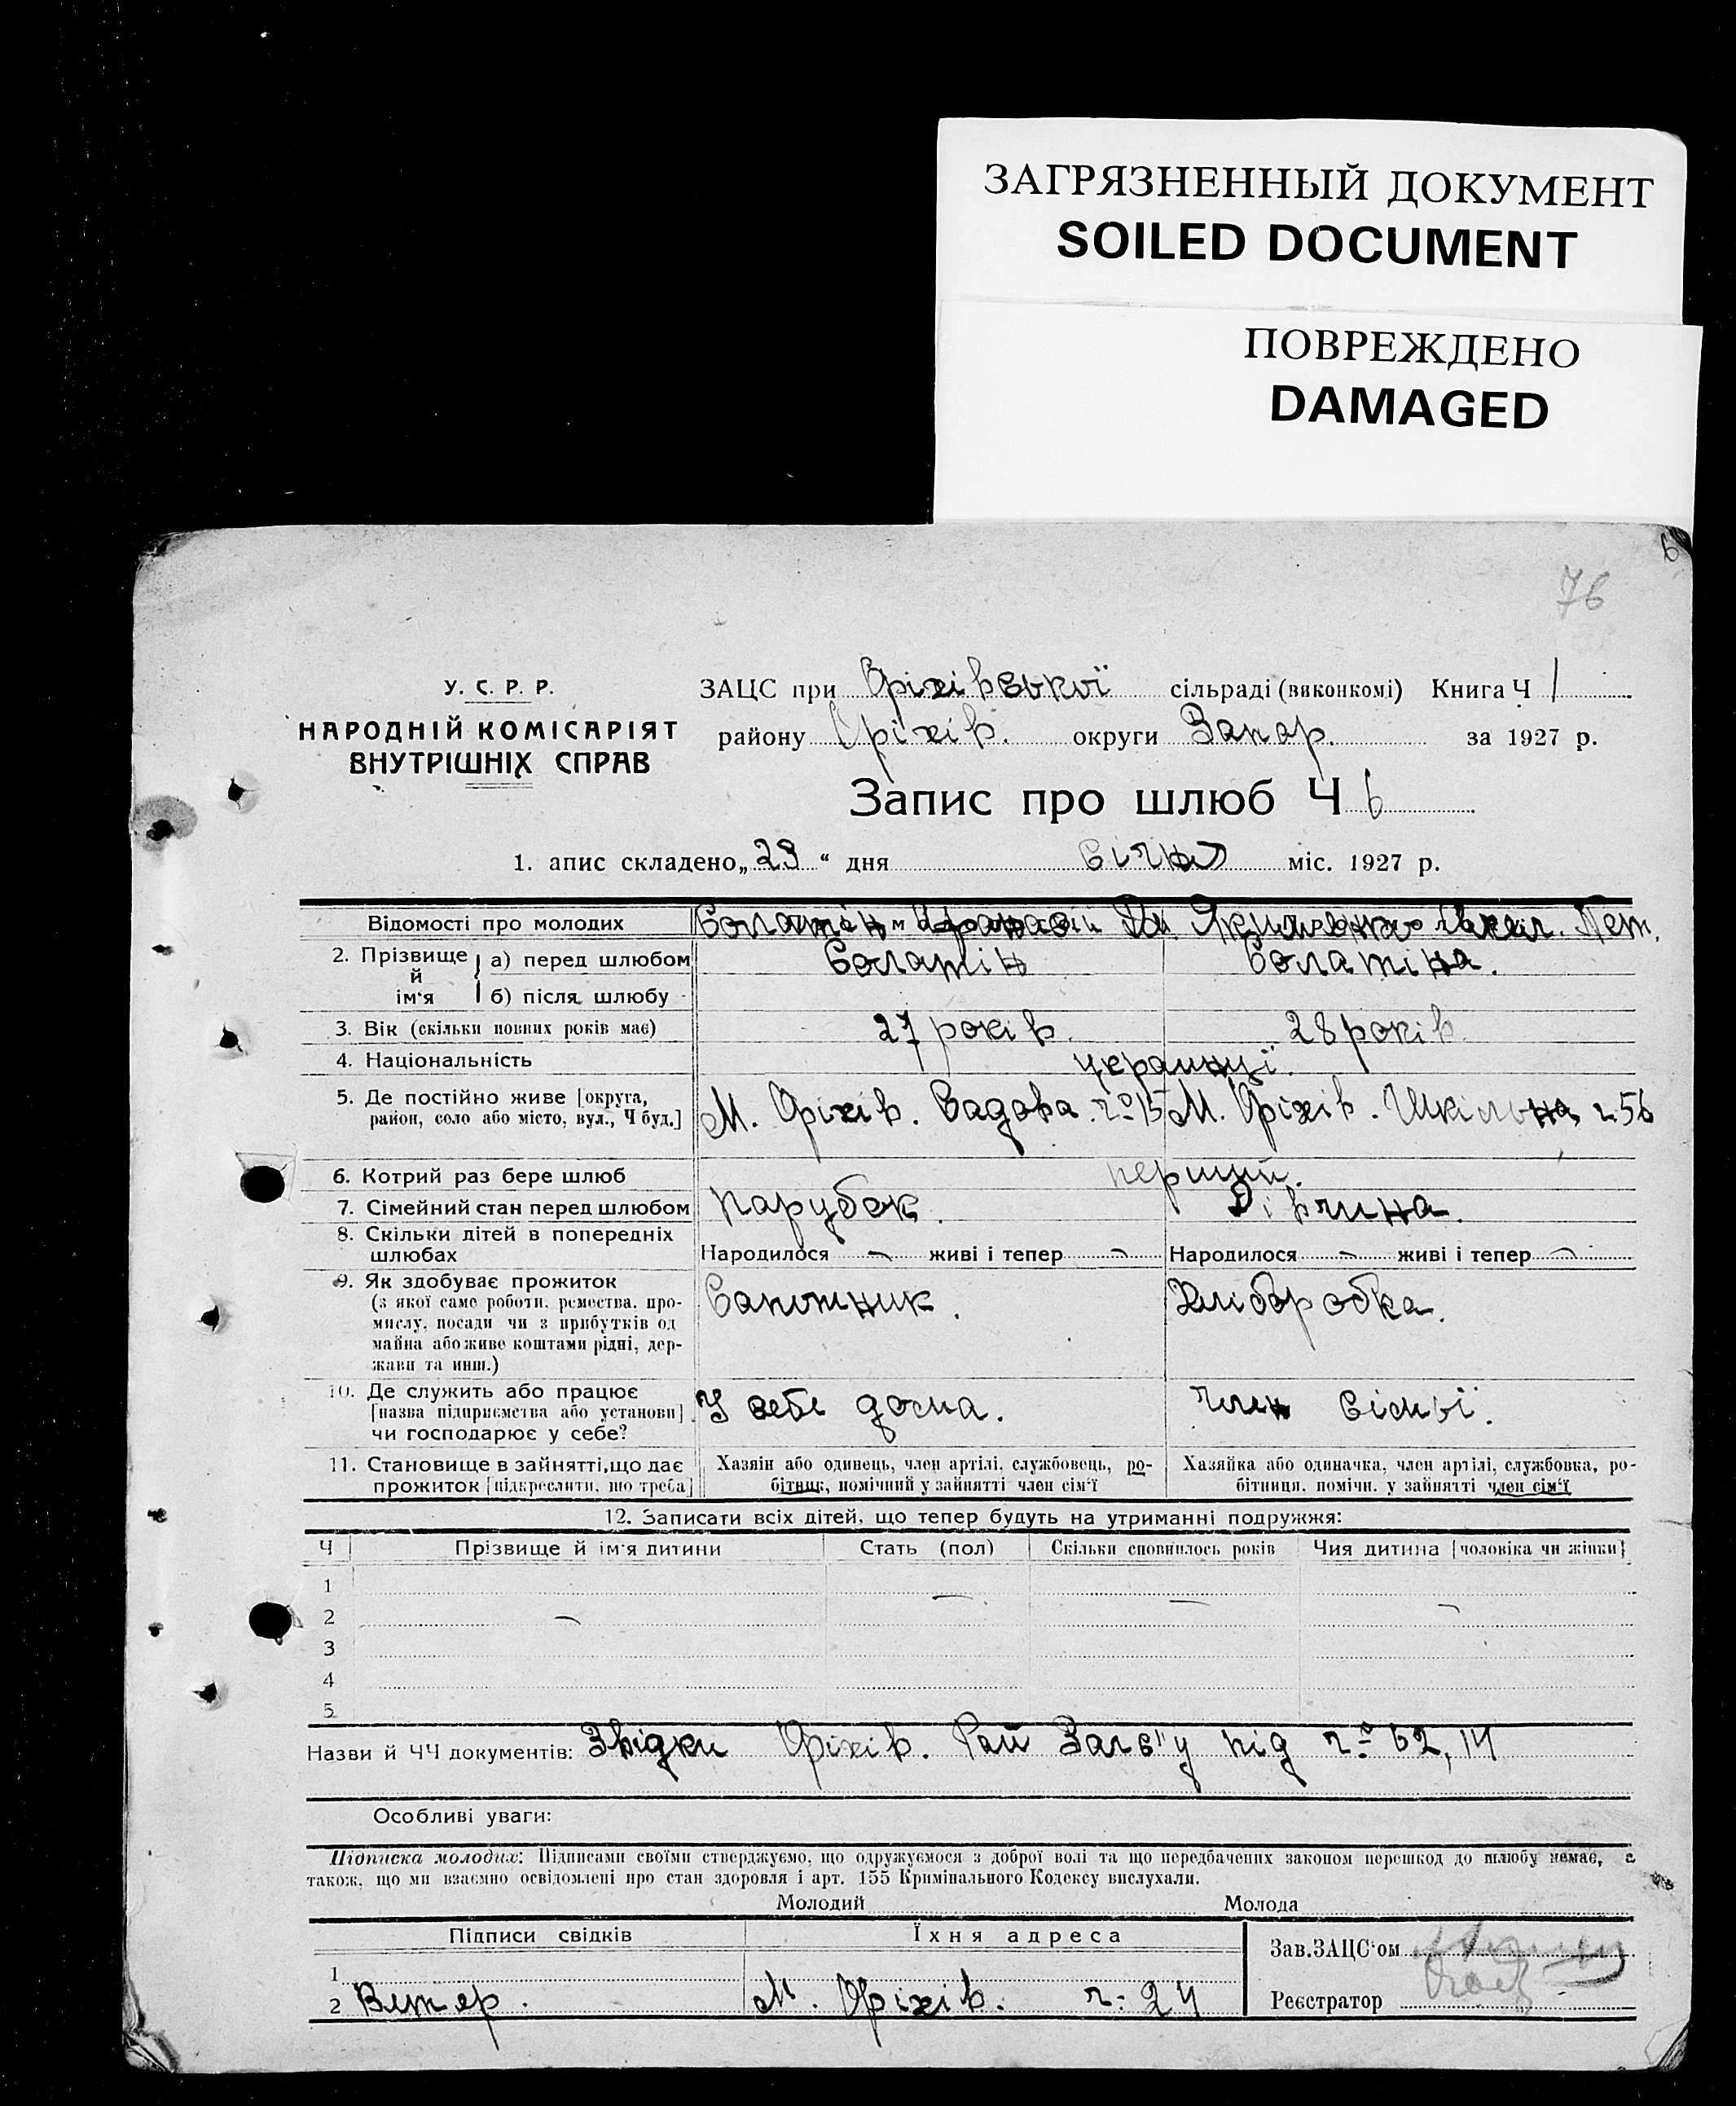 ЗАГРЯЗНЕННЫЙ ДОКУМЕНТ
SOILED DOCUMENT
ПОВРЕЖДЕНО
DAMAGED
6
76
У. С. Р. Р.
НАРОДНІЙ КОМІСАРІЯТ
ВНУТРІШНІХ СПРАВ
ЗАЦС при Оріхівської сільраді (виконкомі) Книга Ч 1
району Оріхів. округи Запор. за 1927 р.
Запис про шлюб Ч 6
1. апис складено „29“ дня Січня міс. 1927 р.
Відомості про молодих Солатін Якимовна Пет.
2. Прізвище й ім'я а) перед шлюбом Солатін Солатіна.
б) після шлюбу
3. Вік (скільки повних років має) 27 років. 28 років.
4. Національність украинці.
5. Де постійно живе [округа, район, село або місто, вул., Ч буд.] М. Оріхів. Садова. ч° 15 М. Оріхів. Шкільна ч 56
6. Котрий раз бере шлюб перший.
7. Сімейний стан перед шлюбом парубок. Дівчина.
8. Скільки дітей в попередніх шлюбах Народилося — живі і тепер — Народилося — живі і тепер —
9. Як здобуває прожиток Сапожник. Хліборобка.
(з якої саме роботи, ремества, про-
мислу, посади чи з прибутків од
майна або живе коштами рідні, дер-
жави та инш.)
10. Де служить або працює [назва підприємства або установи] чи господарює у себе? У себе дома. Член сімьї.
11. Становище в зайнятті, що дає прожиток [підкреслити, що треба]
Хазяін або одинець, член артілі, службовець, ро-
бітник, помічний у зайнятті член сім'ї
Хазяйка або одиначка, член артілі, службовка, ро-
бітниця, помічн. у зайнятті член сім'ї
12. Записати всіх дітей, що тепер будуть на утриманні подружжя:
Ч Прізвище й ім'я дитини Стать (пол) Скільки сповнилось років Чия дитина [чоловіка чи жінки]
1
2
3
4
5
Назви й ЧЧ документів: Звідки Оріхів. Рай під ч° 52, 14
Особливі уваги:
Підписка молодих: Підписами своїми стверджуємо, що одружуємося з доброї волі та що передбачених законом перешкод до шлюбу немає, а
також, що ми взаємно освідомлені про стан здоровля і арт. 155 Кримінального Кодексу вислухали.
Молодий Молода
Підписи свідків Їхня адреса Зав. ЗАЦС'ом
1
2 М. Оріхів. ч: 24 Реєстратор